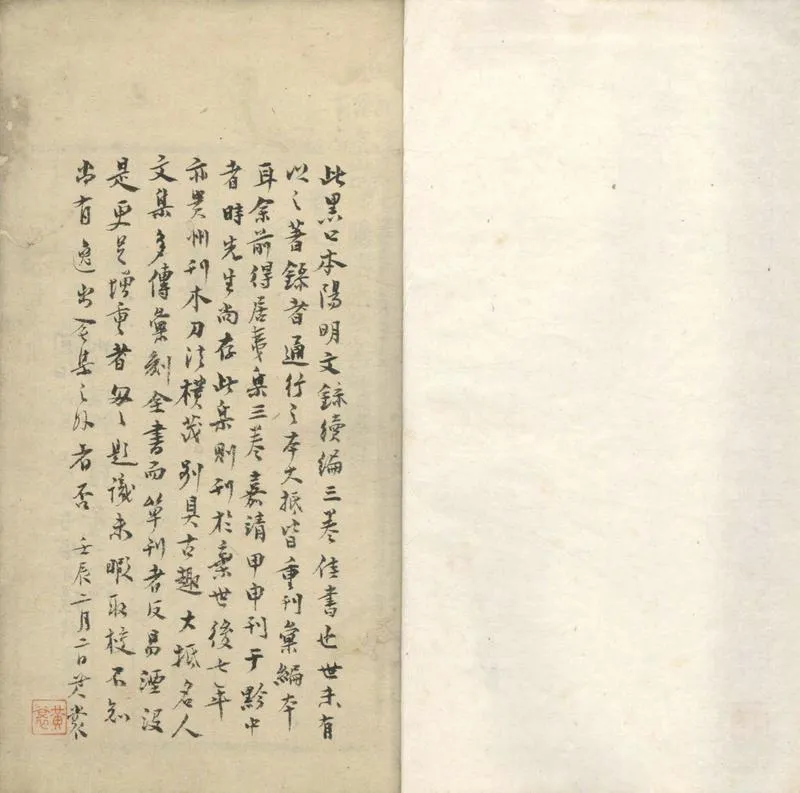 此黑口本陽明文錄續編三卷佳書也世未有
以之著錄者通行之本大抵皆重刊彙編本
耳余前得居夷集三卷嘉靖甲申刊于黔中
者時先生尚存此集則刊於棄世後七年
亦貴州刊本刀法橫茂別具古趣大抵名人
文集多傳彙刻全書而單刊者反易湮没
是更足增重者匆々題識未暇取校不知
尚有逸出全集之外者否 壬辰二月二日黄裳
黄裳